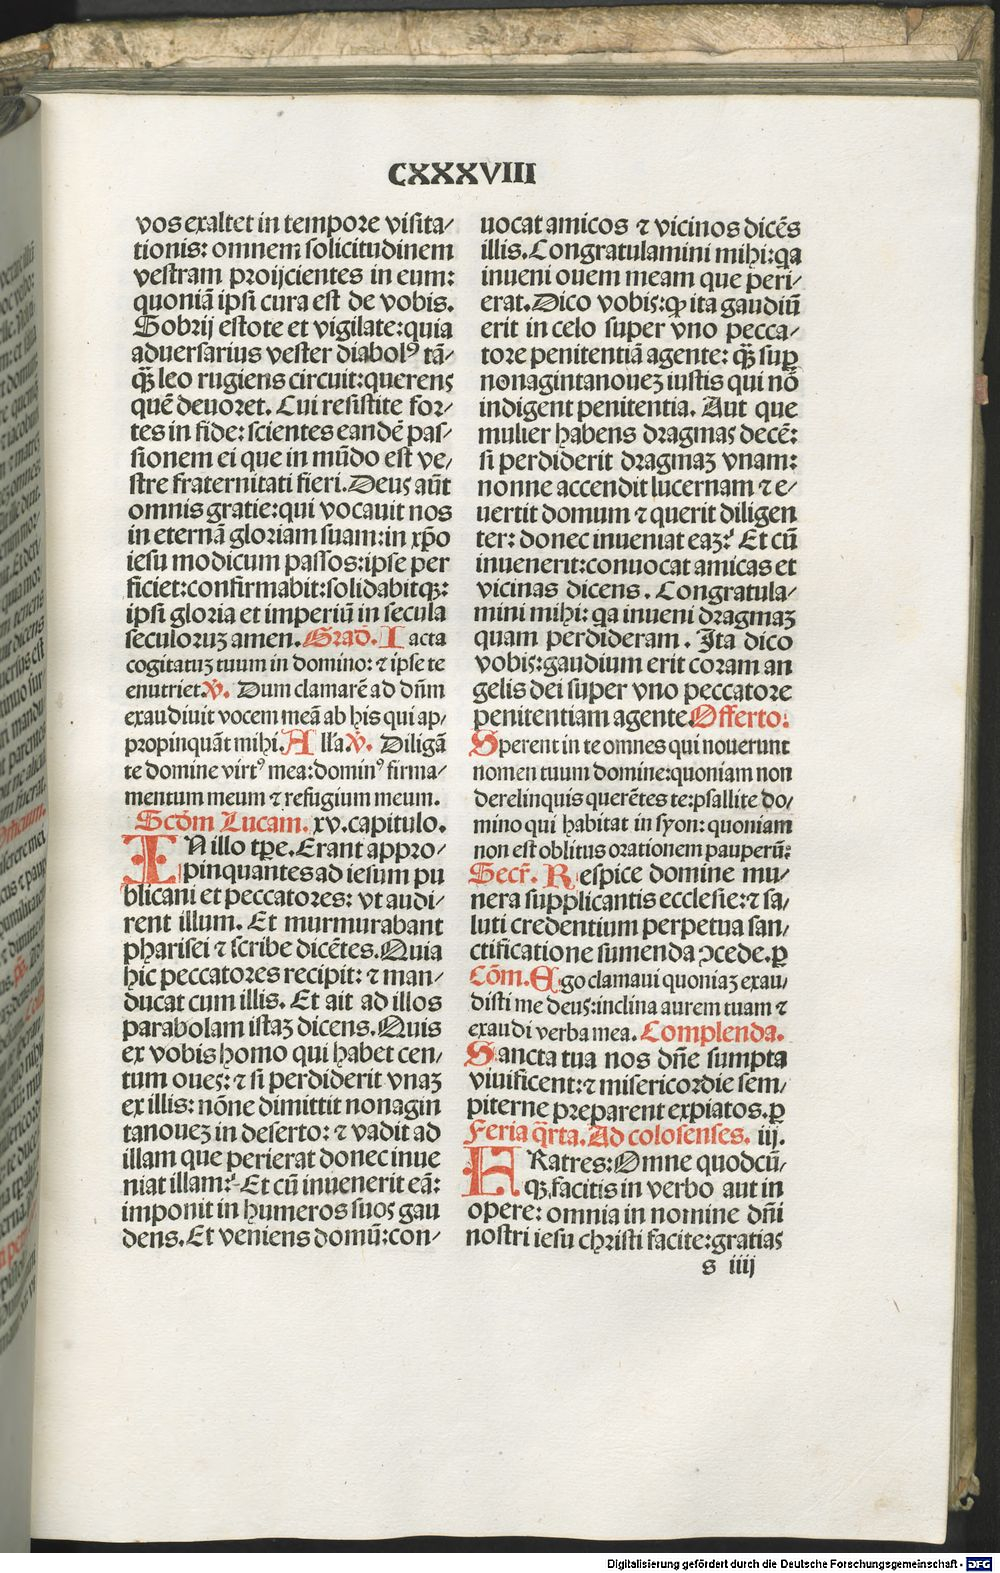 CXXXVIII
vos exaltet in tempore visita/
tionis: omnem solicitudinem
vestram proijcientes in eum:
quoniã ipsi cura est de vobis.
Sobrij estote et vigilate: quia
aduersarius vester diabolꝰ tã/
q̃ȝ leo rugiens circuit: querens
quẽ deuoret. Cui resistite for/
tes in fide: scientes eandẽ pas/
sionem ei que in mũdo est ve/
stre fraternitati fieri. Deus aũt
omnis gratie: qui vocauit nos
in eternã gloriam suam: in xp̃o
iesu modicum passos: ipse per
ficiet: confirmabit: solidabitqȝ:
ipsi gloria et imperiũ in secula
seculoruȝ amen. Grad̃. Iacta
cogitatuȝ tuum in domino: ⁊ ipse te
enutriet. ℣. Dum clamarẽ ad dñm
exaudiuit vocem meã ab his qui ap/
propinquãt mihi. Alla ℣. Diligã
te domine virtꝰ mea: dominꝰ firma/
mentum meum ⁊ refugium meum.
Scd̃m Lucam. xv. capitulo.
IN illo tp̃e. Erant appro/
pinquantes ad iesum pu
blicani et peccatores: vt audi/
rent illum. Et murmurabant
pharisei ⁊ scribe dicẽtes. Quia
hic peccatores recipit: ⁊ man/
ducat cum illis. Et ait ad illos
parabolam istaȝ dicens. Quis
ex vobis homo qui habet cen/
tum oues: ⁊ si perdiderit vnaȝ
ex illis: nõne dimittit nonagin
tanoueȝ in deserto: ⁊ vadit ad
illam que perierat donec inue
niat illam? Et cũ inuenerit eã:
imponit in humeros suos gau
dens. Et veniens domũ: con/
uocat amicos ⁊ vicinos dicẽs
illis. Congratulamini mihi: q̃a
inueni ouem meam que peri/
erat. Dico vobis: ꝙ ita gaudiũ
erit in celo super vno pecca/
tore penitentiã agente: q̃ȝ suꝑ
nonagintanoueȝ iustis qui nõ
indigent penitentia. Aut que
mulier habens dragmas decẽ:
si perdiderit dragmaȝ vnam:
nonne accendit lucernam ⁊ e/
uertit domum ⁊ querit diligen
ter: donec inueniat eaȝ? Et cũ
inuenerit: conuocat amicas et
vicinas dicens. Congratula/
mini mihi: q̃a inueni dragmaȝ
quam perdideram. Ita dico
vobis: gaudium erit coram an
gelis dei super vno peccatore
penitentiam agente. Offerto:
Sperent in te omnes qui nouerunt
nomen tuum domine: quoniam non
derelinquis querẽtes te: psallite do/
mino qui habitat in syon: quoniam
non est oblitus orationem pauperũ:
Secr̃. Respice domine mu/
nera supplicantis ecclesie: ⁊ sa/
luti credentium perpetua san/
ctificatione sumenda ↄcede. ꝑ
Cõm. Ego clamaui quoniaȝ exau/
disti me deus: inclina aurem tuam ⁊
exaudi verba mea. Complenda.
Sancta tua nos dñe sumpta
viuificent: ⁊ misericordie sem/
piterne preparent expiatos. ꝑ
Feria q̃rta. Ad colosenses. iij.
FRatres: Omne quodcũ/
qȝ facitis in verbo aut in
opere: omnia in nomine dñi
nostri iesu christi facite: gratias
s iiij
Digitalisierung gefördert durch die Deutsche Forschungsgemeinschaft - DFG